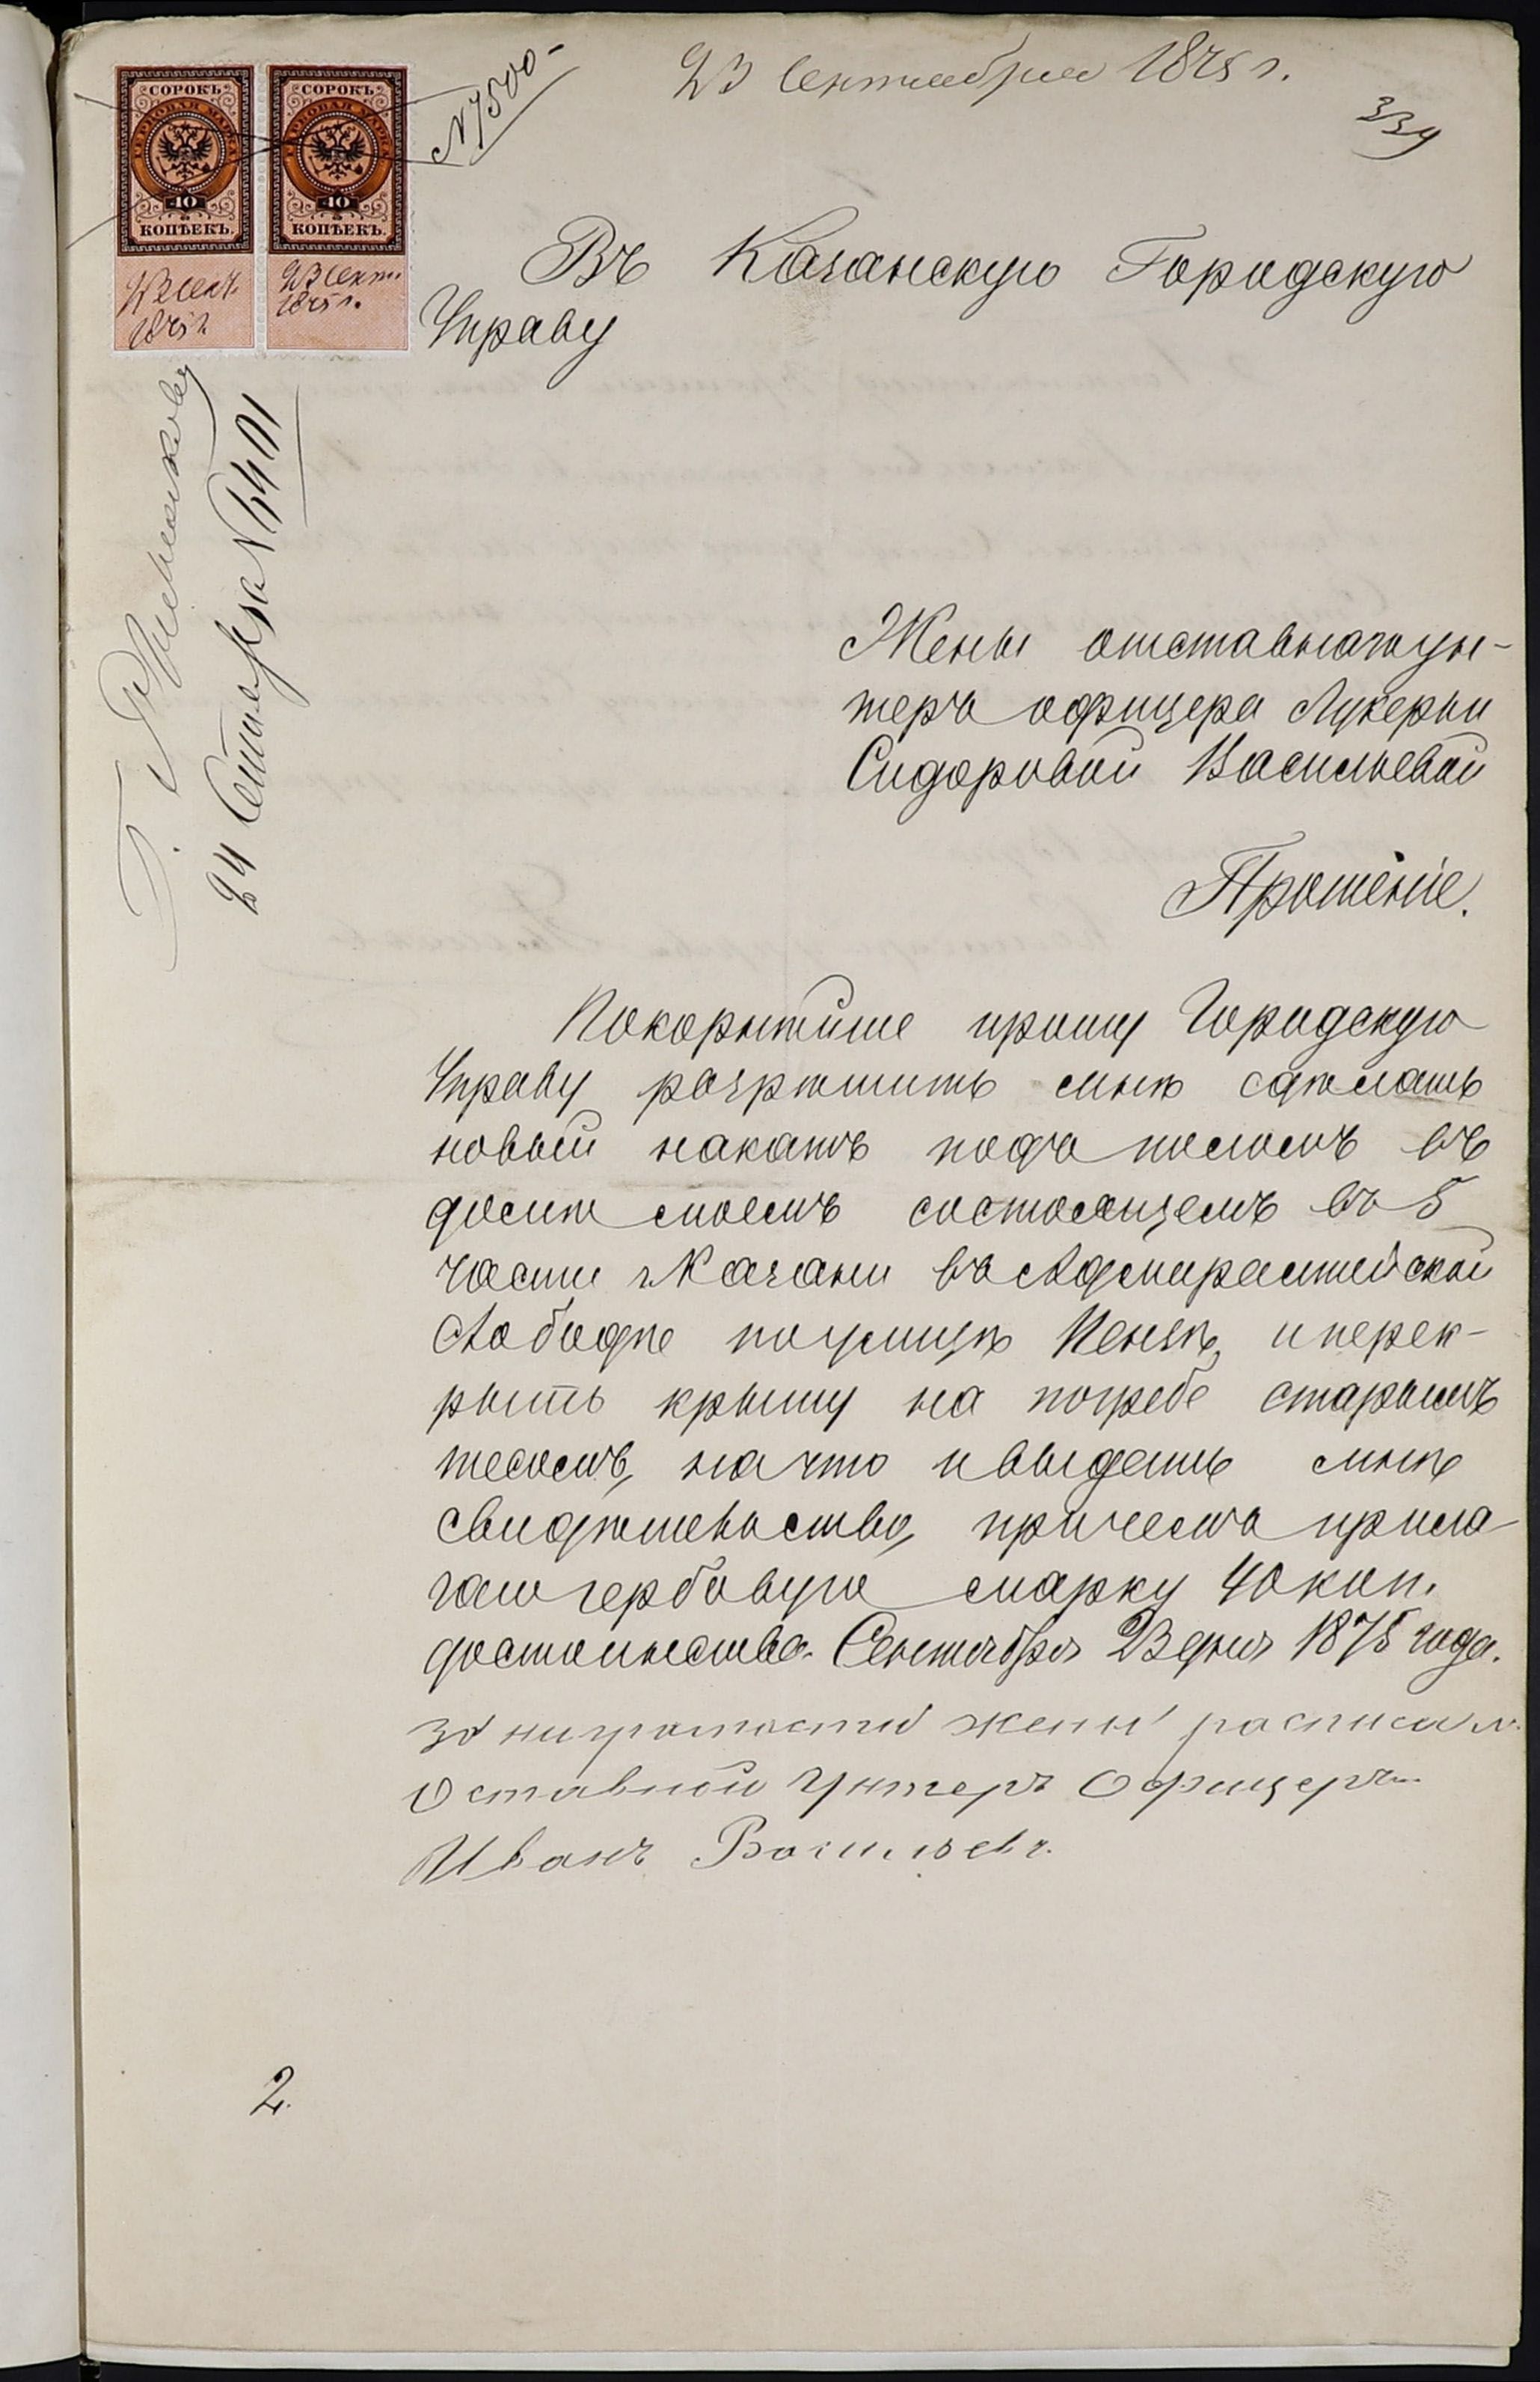 23 Сентября 1875 г.
№ 7500
339
СОРОКЪ
ГЕРБОВАЯ МАРКА
40
КОПѢЕКЪ.
23 сент.
1875 г.
СОРОКЪ
ГЕРБОВАЯ МАРКА
40
КОПѢЕКЪ.
23 сент.
1875 г.
Въ Казанскую Городскую
Управу
24 Сентября № 5401
Жены отставнагоун-
теръ офицера Лукерьи
Сидоровой Васильевой
Прошеніе.
Покорнѣйше прошу Городскую
Управу разрѣшить мнѣ сдѣлать
новый накатъ подъ поломъ въ
домѣ моемъ состоящемъ въ 5
части г. Казани въ Адмиралтейской
слободѣ поулицѣ Пенѣ, иперек-
рыть крышу на погребѣ старымъ
тесомъ, на что и выдать мнѣ
свидѣтельство, причемъ прила
гаю гербовую марку 40 коп.
достоинства. Сентября 23 дня 1875 года.
за ниграмостей жены росписал
Оставной Унтеръ Офицеръ
Иванъ Васильевъ.
2.